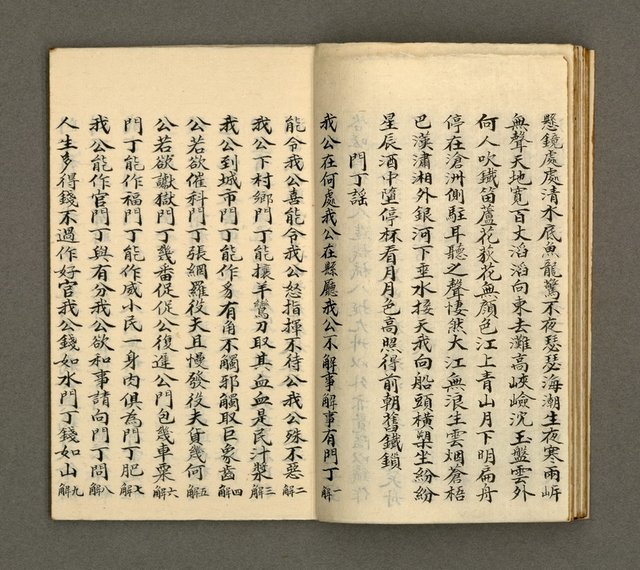 懸鏡處處清木底魚龍驚不夜瑟瑟海潮生夜寒兩岸
無聲天地寬百丈滔滔向東去灘高峽嶮沉玉盤雲外
何人吹鐵笛蘆花荻花無顏色江上青山月下明扁舟
停在滄洲側駐耳聽之聲悽然大江無浪生雲烟蒼梧
巴漢瀟湘外銀河下垂水接天我向船頭橫槊坐紛紛
星辰酒中墮停杯看月月色高照得前朝舊鐵鎖
門丁謠
我公在何處我公在縣廳我公不解事解事有門丁一解
能令我公喜能令我公怒指揮不待公我公殊不惡二解
我公下村鄉門丁能攘羊鸞刀取其血血是民汁漿三解
我公到城市門丁能作豸有角不觸邪觸取巨象齒四解
公若欲催科門丁張網羅役夫且慢發役夫貲幾何五解
公若欲讞獄門丁幾番促促公復進公門包幾車粟六解
門丁能作福門丁能作威小民一身肉俱為門丁肥七解
我公能作官門丁與有分我公欲和事請向門丁問八解
人生多得錢不過作好官我公錢如水門丁錢如山九解